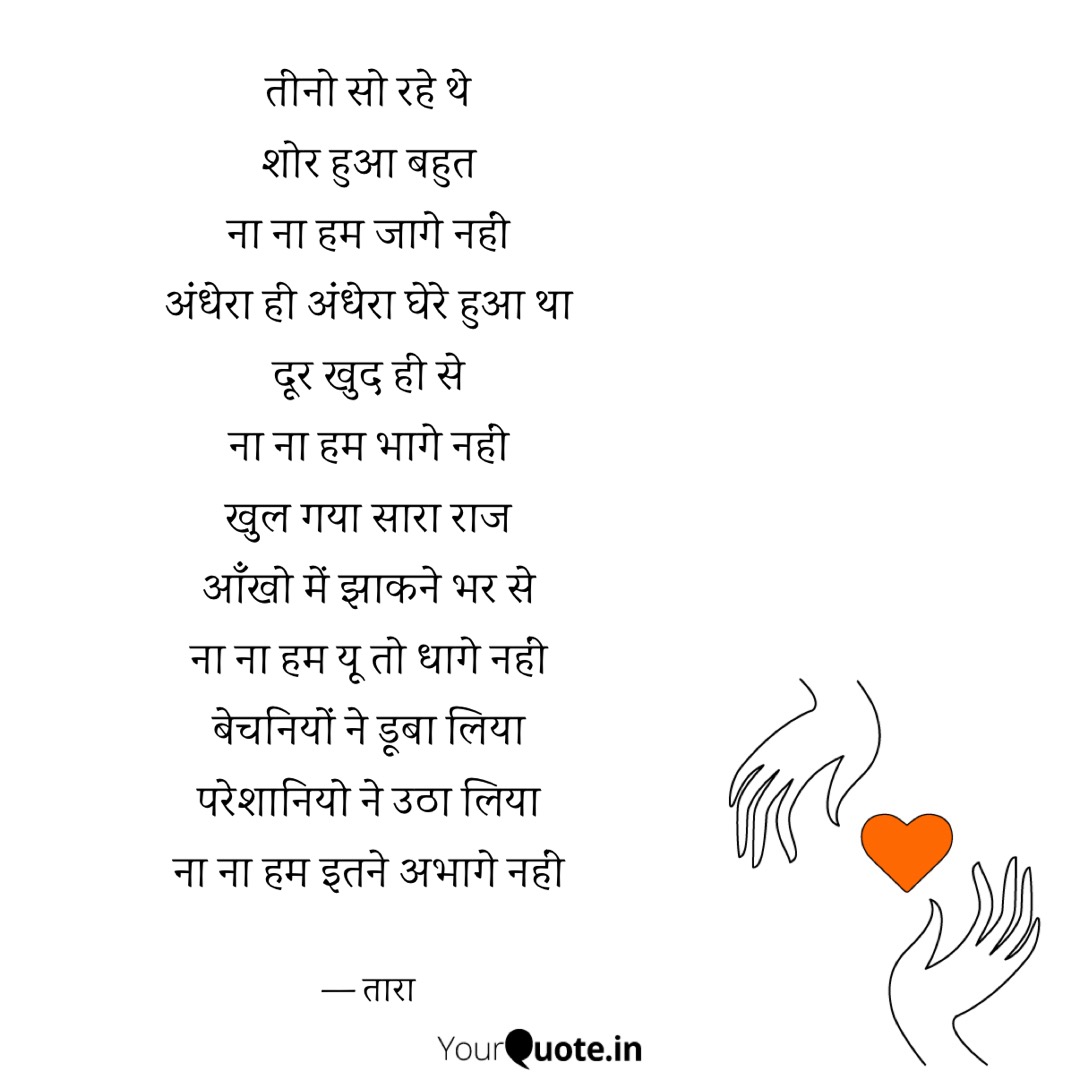 तीनो सो रहे थे
शोर हुआ बहुत
ना ना हम जागे नहीं
अंधेरा ही अंधेरा घेरे हुआ था
दूर खुद ही से
ना ना हम भागे नहीं
खुल गया सारा राज
आँखो में झाकने भर से
ना ना हम यू तो धागे नहीं
बेचनियों ने डूबा लिया
परेशानियो ने उठा लिया
ना ना हम इतने अभागे नहीं
— तारा
YourQuote.in